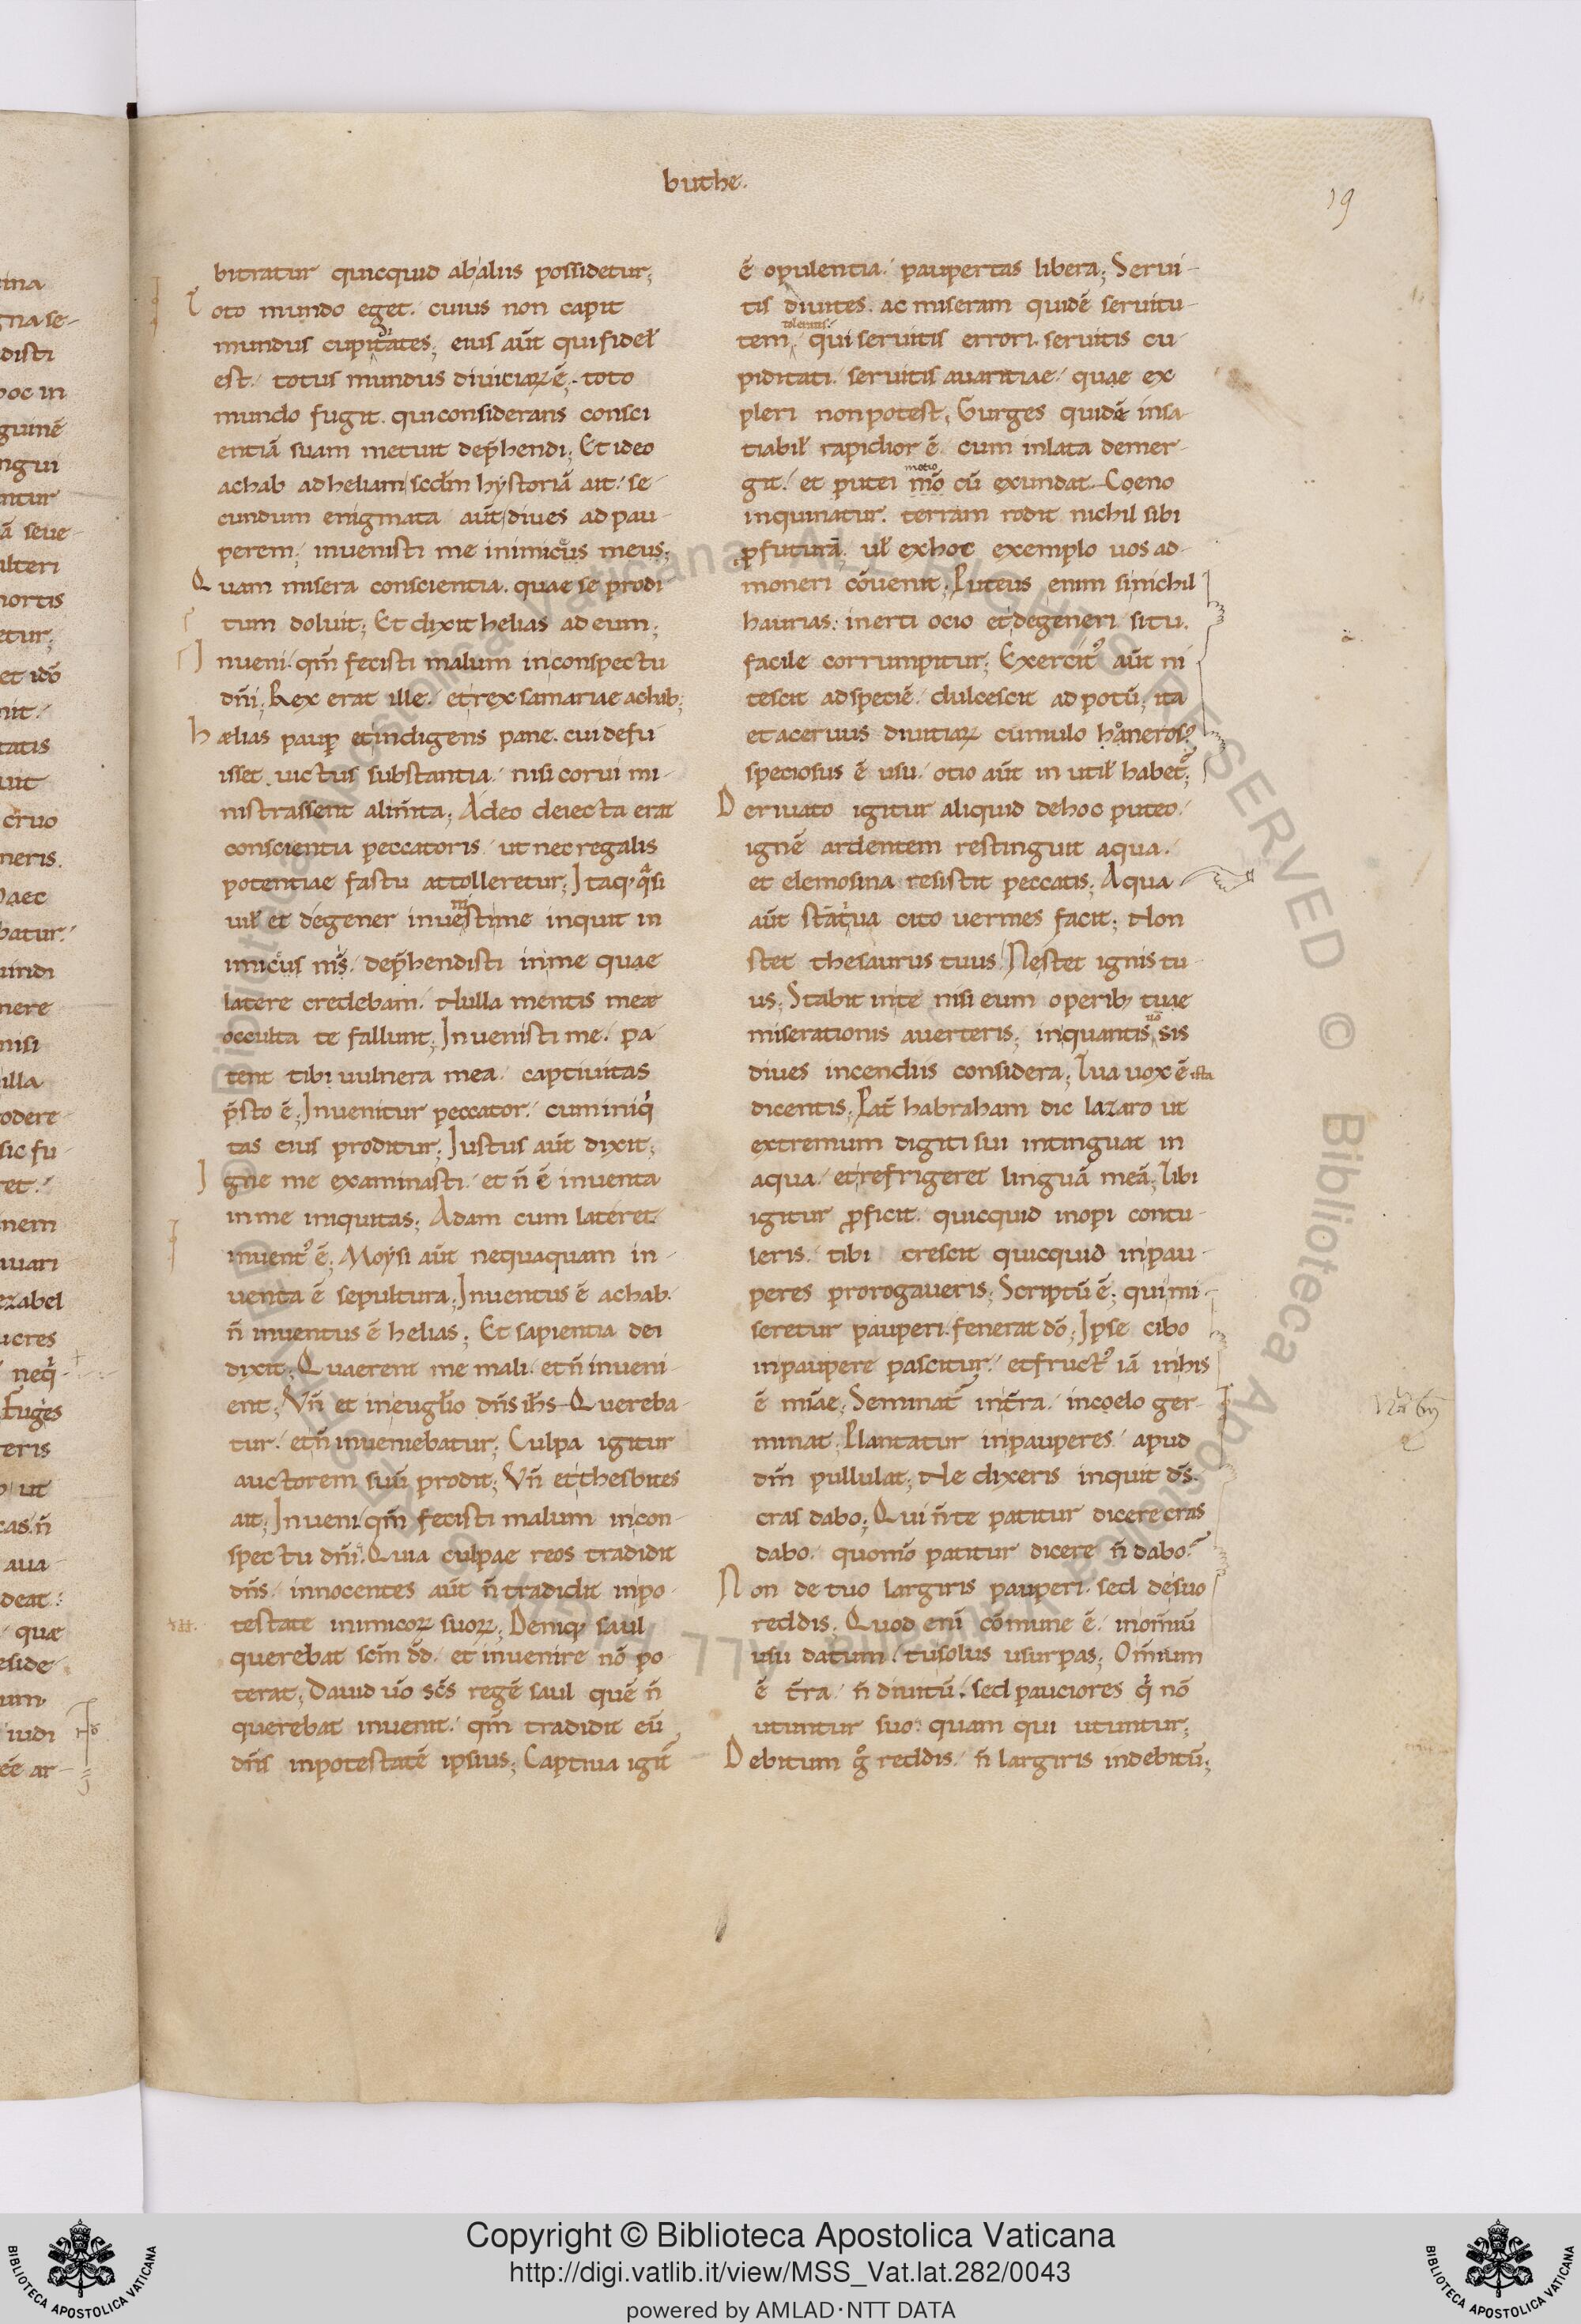 buthe.
19
bitratur quicquid abaliis possidetur;
Toto mundo eget. cuius non capit
mundus cupiditates; eius aūt qui fidel̄
est. totus mundus divitiaꝝ ē. toto
mundo fugit. qui considerans consci
entiā suam metuit dep̄hendi; Et ideo
achab ad heliam scd̄m hystoriā ait. se-
cundum enigmata aūt dives ad pau-
perem; invenisti me inimicus meus;
Quam misera conscientia. quae se prodi
tum doluit; Et dixit helias ad eum;
Inveni. qm̄ fecisti malum in conspectu
dn̄i; Rex erat ille. et rex samariae achab;
hælias paup̲ et indigens pane. cui defu
isset victus substantia. nisi corvi mi-
nistrassent alim̄ta; Adeo deiecta erat
conscientia peccatoris. ut nec regalis
potentiae fastu attolleretur; Itaq; qᵃsi
vil̄ et degener invenisti me inquit in
imicus ms̄. dep̄hendisti in me quae
latere credebam. Nulla mentis meæ
occulta te fallunt; Invenisti me. pa-
tent tibi vulnera mea. captivitas
p̄sto ē; Invenitur peccator. cum iniqⁱ
tas eius proditur; Iustus aūt dixit;
Igne me examinasti. et n̄ ē inventa
in me iniquitas; Adam cum lateret
invent᾽ ē; Moysi aūt nequaquam in-
venta ē sepultura; Inventus ē achab.
n̄ inventus ē helias; Et sapientia dei
dixit; Quaerent me mali. et n̄ inveni-
ent; Vn̄ et in evgl̄io dn̄s ih̄s. Quereba-
tur. et n̄ inveniebatur; Culpa igitur
auctorem suū prodit; Vn̄ et thesbites
ait; Inveni. qm̄ fecisti malum in con-
spectu dn̄i. Quia culpae reos tradidit
dn̄s. innocentes aūt n̄ tradidit in po-
testate inimicoꝝ suoꝝ; Deniq; saul
querebat scm̄ d̄d. et invenire nō po-
terat; David v̄o sc̄s regē saul quē n̄
querebat invenit. qm̄ tradidit eū
dn̄s in potestatē ipsius; Captiva igit᷑
ē opulentia. paupertas libera; Servi-
tis divites. ac miseram quidē servitu-
tem. qui servitis errori. servitis cu-
piditati. servitis avaritiae. quae ex
pleri non potest; Gurges quidē insa-
tiabil̄ rapidior ē. cum inlata demer-
git. et putei mō cū exundat. Coeno
motio
inquinatur. terram rodit nichil sibi
p̲futurā; vl̄ ex hoc exemplo vos ad-
moneri cōvenit; Puteus enim si nichil
haurias. inerti ocio et degeneri situ.
facile corrumpitur; Exercit᾽ aūt ni
tescit ad speciē. dulcescit ad potū; ita
et acervus divitiaꝝ cumulo haneros᾽
speciosus ē usu. otio aūt inutil̄ habet᷑;
Derivato igitur aliquid de hoc puteo.
ignē ardentem restinguit aqua.
et elemosina resistit peccatis; Aqua
aūt statᵘva cito vermes facit; Non
stet thesaurus tuus. Ne stet ignis tu-
us; Stabit in te nisi eum operib; tuae
miserationis averteris; in quantis sis
dives incendiis considera; Tua vox ē ista
dicentis; Pat̄ habraham dic lazaro ut
extremum digiti sui intinguat in
aqua. et refrigeret linguā meā; Tibi
igitur proficit. quicquid inopi contu-
leris. tibi crescit quicquid in pau-
peres prorogaveris; Scriptū ē; qui mi-
seretur pauperi. fenerat dō; Ipse cibo
in paupere pascitur. et fruct᾽ iā in his
ē mīae; Seminat᷑ in t̄ra. in coelo ger-
minat; Plantatur in pauperes. apud
dm̄ pullulat; Ne dixeris inquit d̄s.
cras dabo; Qui n̄ te patitur dicere cras
dabo. quomō patitur dicere n̄ dabo?
Non de tuo largiris pauperi. sed de suo
reddis; Quod enī cōmune ē. in om̄iū
usu datum. tu solus usurpas; Om̄ium
ē t̄ra. n̄ divitū. sed pauciores qⁱ nō
utuntur suo. quam qui utuntur;
Debitum gᵒ reddis. n̄ largiris indebitū;
Copyright © Biblioteca Apostolica Vaticana
http://digi.vatlib.it/view/MSS_Vat.lat.282/0043
powered by AMLAD·NTT DATA
BIBLIOTECA APOSTOLICA VATICANA
BIBLIOTECA APOSTOLICA VATICANA